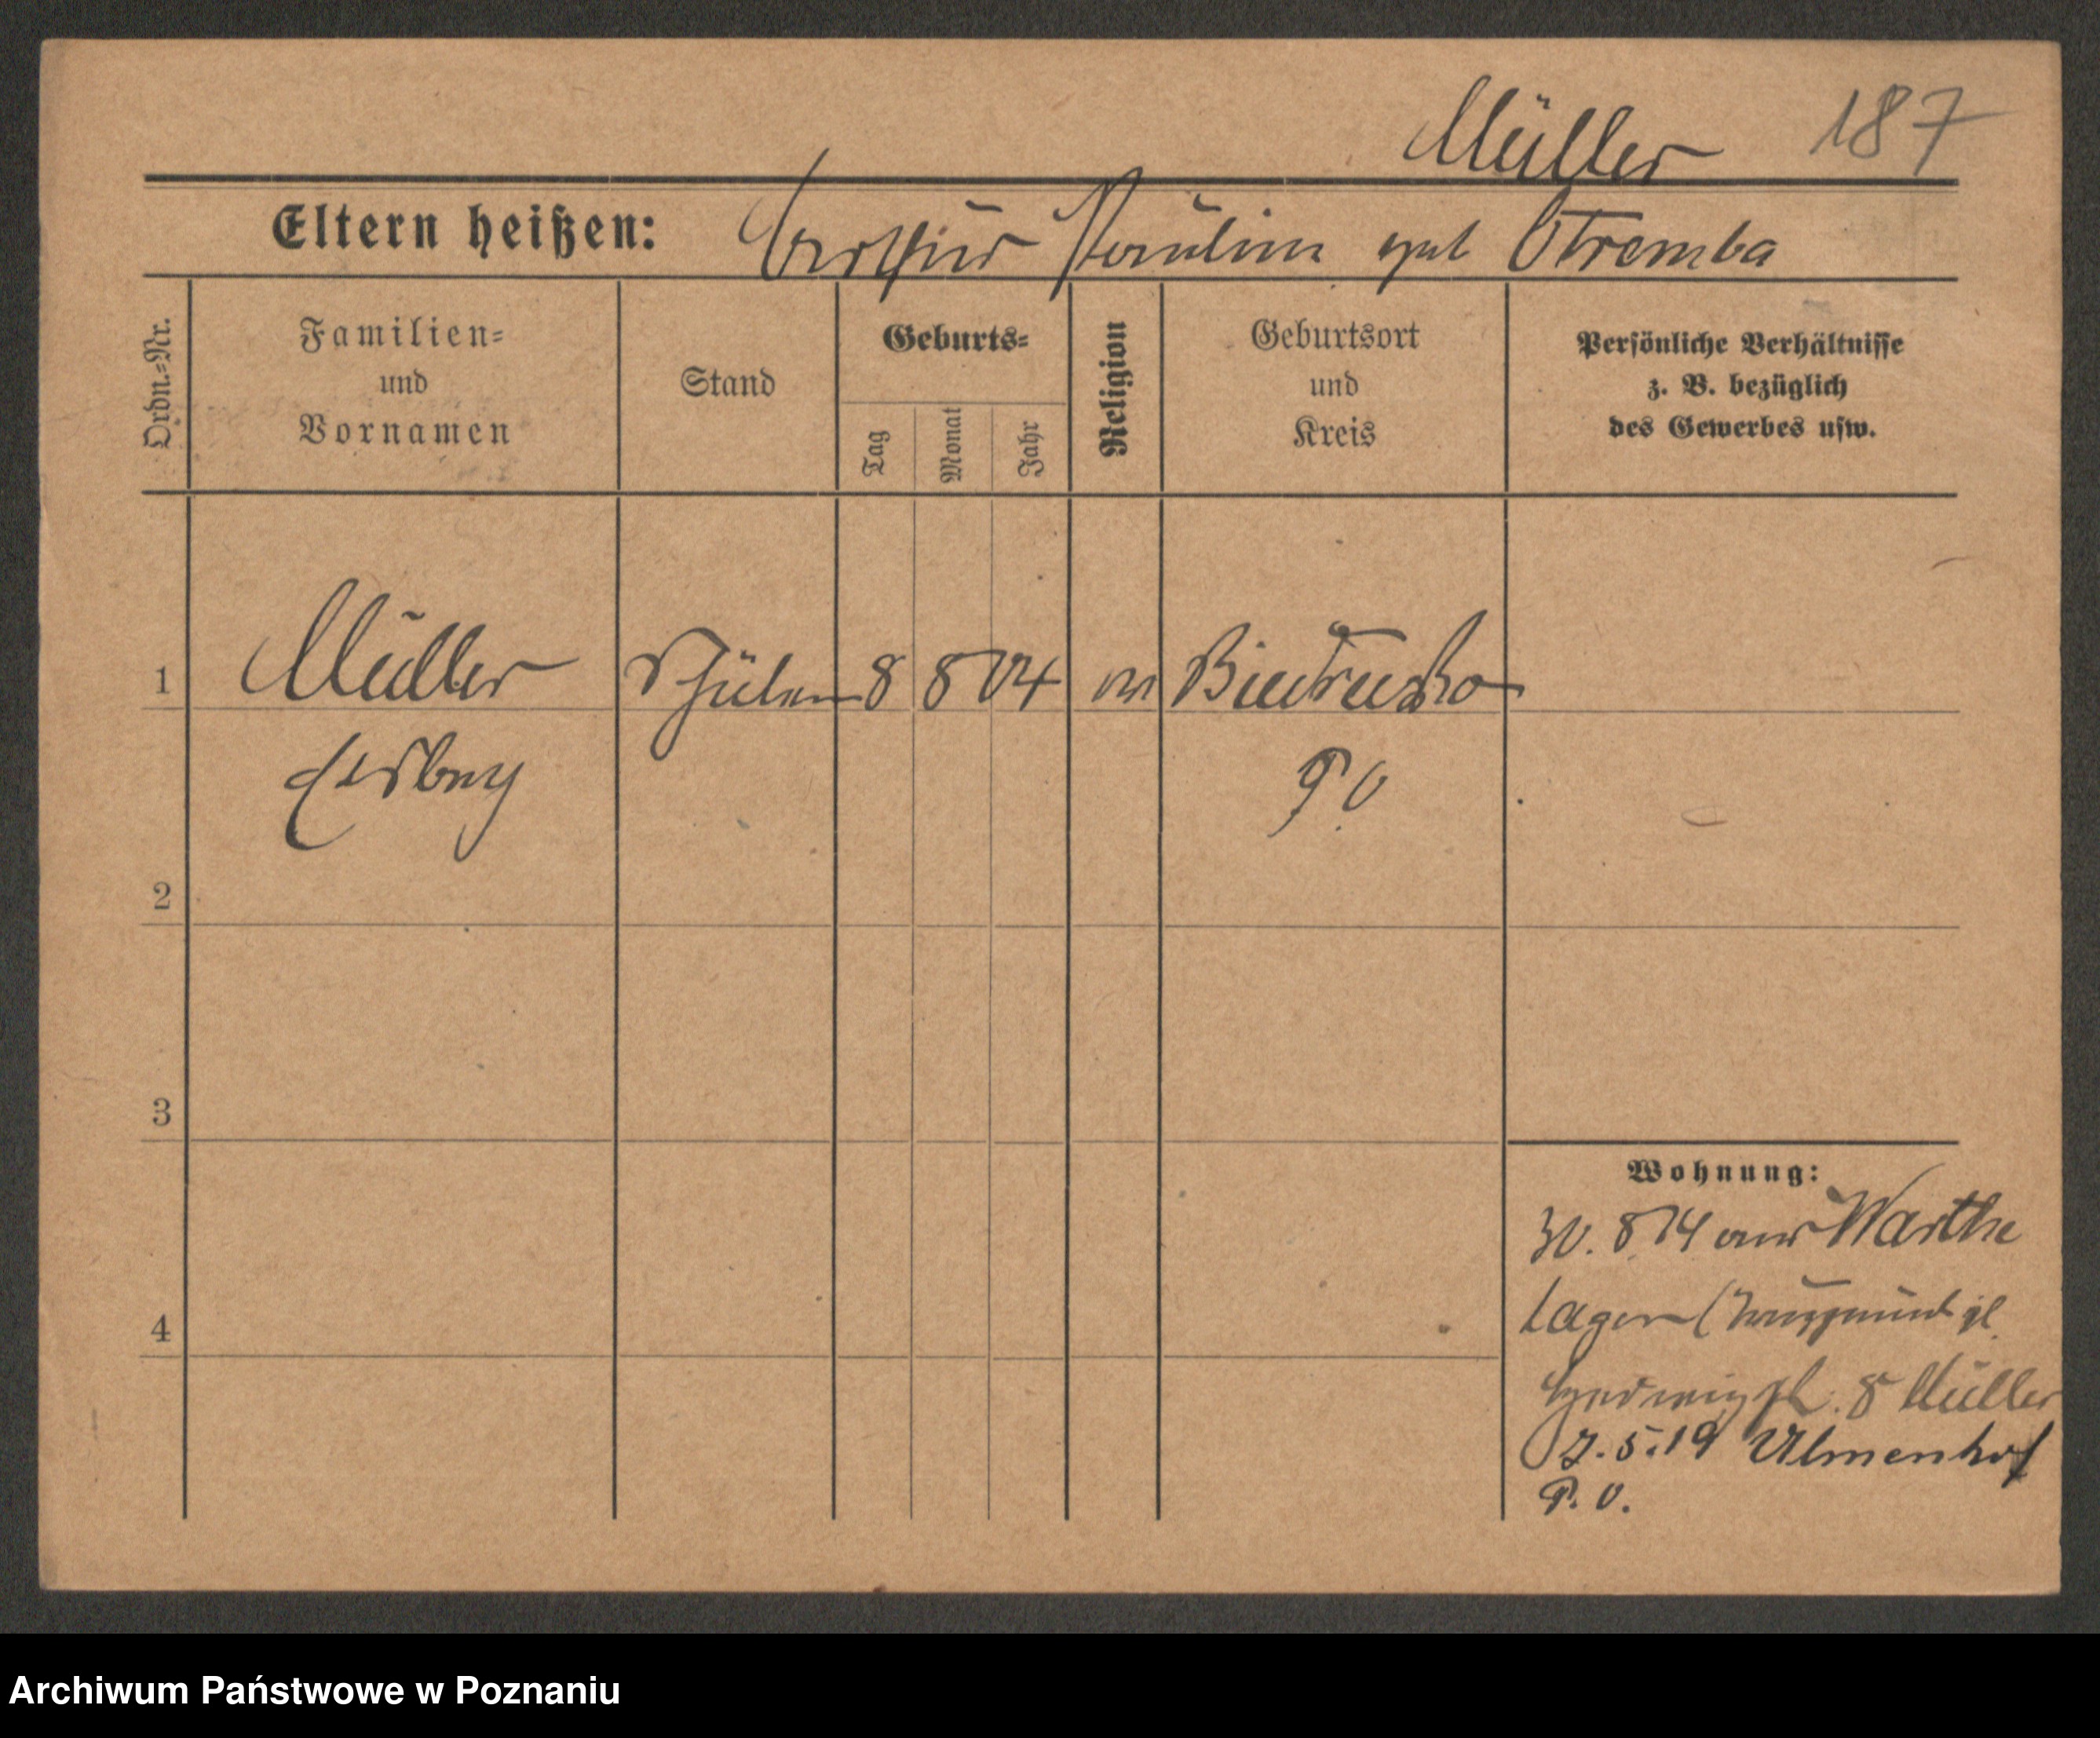 Müller 187
Eltern heißen: Arthur Paulina geb Otremba
Ordn.-Nr.
Familien-
und
Vornamen
Stand
Geburts-
Tag
Monat
Jahr
Religion
Geburtsort
und
Kreis
Persönliche Verhältnisse
z. B. bezüglich
des Gewerbes usw.
1 Müller Schüler 8 8 04 Biedrusko
P. O
2
3
4
Wohnung:
30. 8 14 aus Warthe
Lager (Truppenüb pl
Hedwigstr. 8 Müller
7. 5. 19 Ulmenhof
P. O.
Archiwum Państwowe w Poznaniu